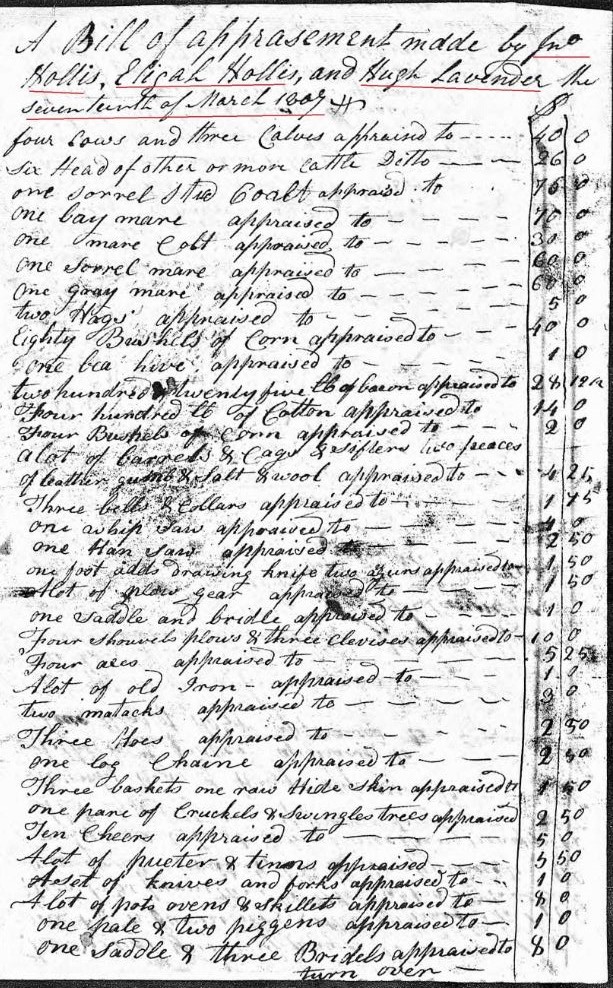 A Bill of apprasement made by Jno
Hollis, Elijah Hollis, and Hugh Lavender the
seventeenth of March 1807
$
four Cows and three Calves appraisd to 40 0
six Head of other or more Cattle Ditto 26 0
one sorrel stud Coalt appraisd to 75 0
one bay mare appraised to 70 0
one mare Colt appraised to 30 0
one sorrel mare appraised to 60 0
one gray mare appraised to 60 0
two Hogs appraised to 5 0
Eighty Bushels of Corn appraised to 40 0
one bea hive appraised to 1 0
two hundred & twenty five lb of bacon appraised to 28 12½
Four hundred lb of Cotton appraised to 14 0
Four Bushels of Corn appraised to 2 0
a lot of barrels & Cags & sifters two peaces
of leather gumb & Salt & wool appraised to 4 25
Three bells & Collars appraised to 1 75
one whip saw appraised to 4 0
one Han saw appraised to 2 50
one foot adds drawing knife two appraised to 1 50
Alot of plow gear appraised to 1 50
one saddle and bridle appraised to 1 0
Four shouvels plows & three Clevises appraised to 10 0
Four axes appraised to 5 25
Alot of old Iron appraised to 1 0
two matacks appraised to 3 0
Three Hoes appraised to 2 50
one log Chaine appraised to 2 50
Three baskets one raw Hide skin appraised to 1 50
one pare of Cruckels & swingles trees appraised 2 50
Ten Cheers appraised to 5 0
Alot of pueter & tinns appraised 5 50
Aset of knives and forks appraised to 1 0
Alot of pots ovens & skillets appraised to 8 0
one pale & two piggens appraised to 1 0
one saddle & three Bridels appraised to 8 0
turn over